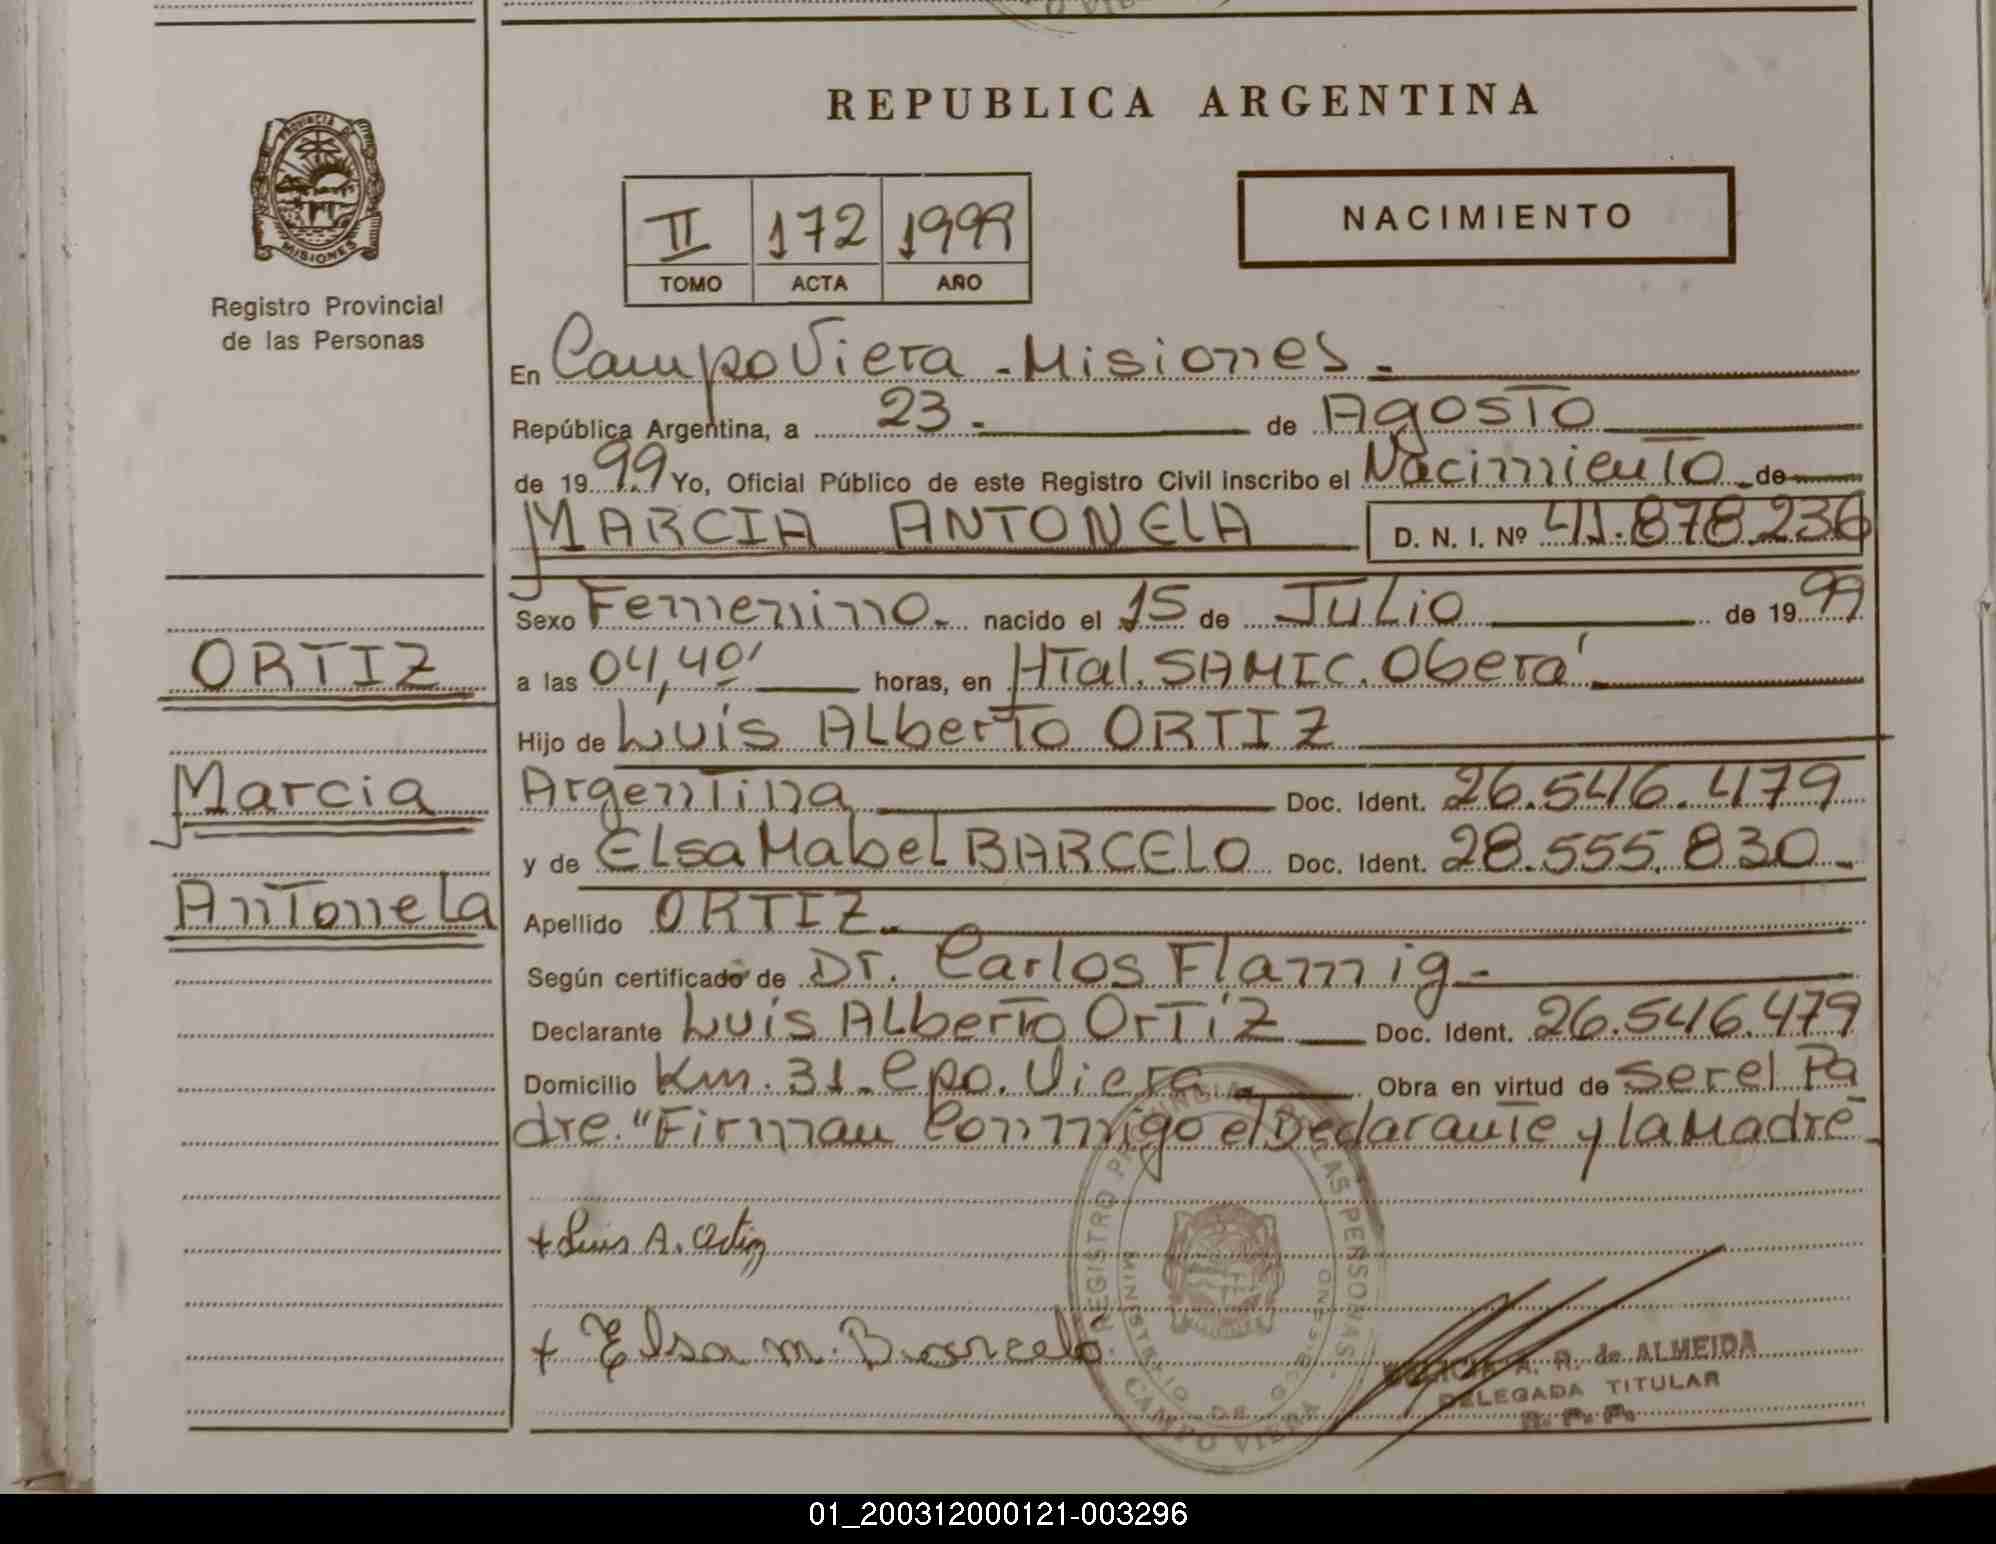 REPUBLICA ARGENTINA
PROVINCIA DE MISIONES
Registro Provincial
de las Personas
II 172 1999
TOMO ACTA AÑO
NACIMIENTO
En Campo Viera - Misiones.-
República Argentina, a 23.- de Agosto
de 1999 Yo, Oficial Público de este Registro Civil inscribo el Nacimiento de
MARCIA ANTONELA D. N. I. Nº 41.878.236
Sexo Femenino. nacido el 15 de Julio de 1999
ORTIZ
a las 04,40' horas, en Htal. SAMIC. Oberá
Hijo de Luis Alberto ORTIZ
Marcia
Argentina Doc. Ident. 26.546.479
y de Elsa Mabel BARCELO Doc. Ident. 28.555.830.-
Antonela
Apellido ORTIZ.
Según certificado de Dr. Carlos Flamig.-
Declarante Luis Alberto Ortiz Doc. Ident. 26.546.479
Domicilio Km. 31. Cpo. Viera. Obra en virtud de ser el Pa
dre. "Firman Conmigo el Declarante y la Madre
+ Luis A. Ortiz
+ Elsa M. Barcelo
REGISTRO PROVINCIAL DE LAS PERSONAS
MINISTERIO DE GOB
CAMPO VIERA
A. R. de ALMEIDA
DELEGADA TITULAR
R. P. P.
01_200312000121-003296